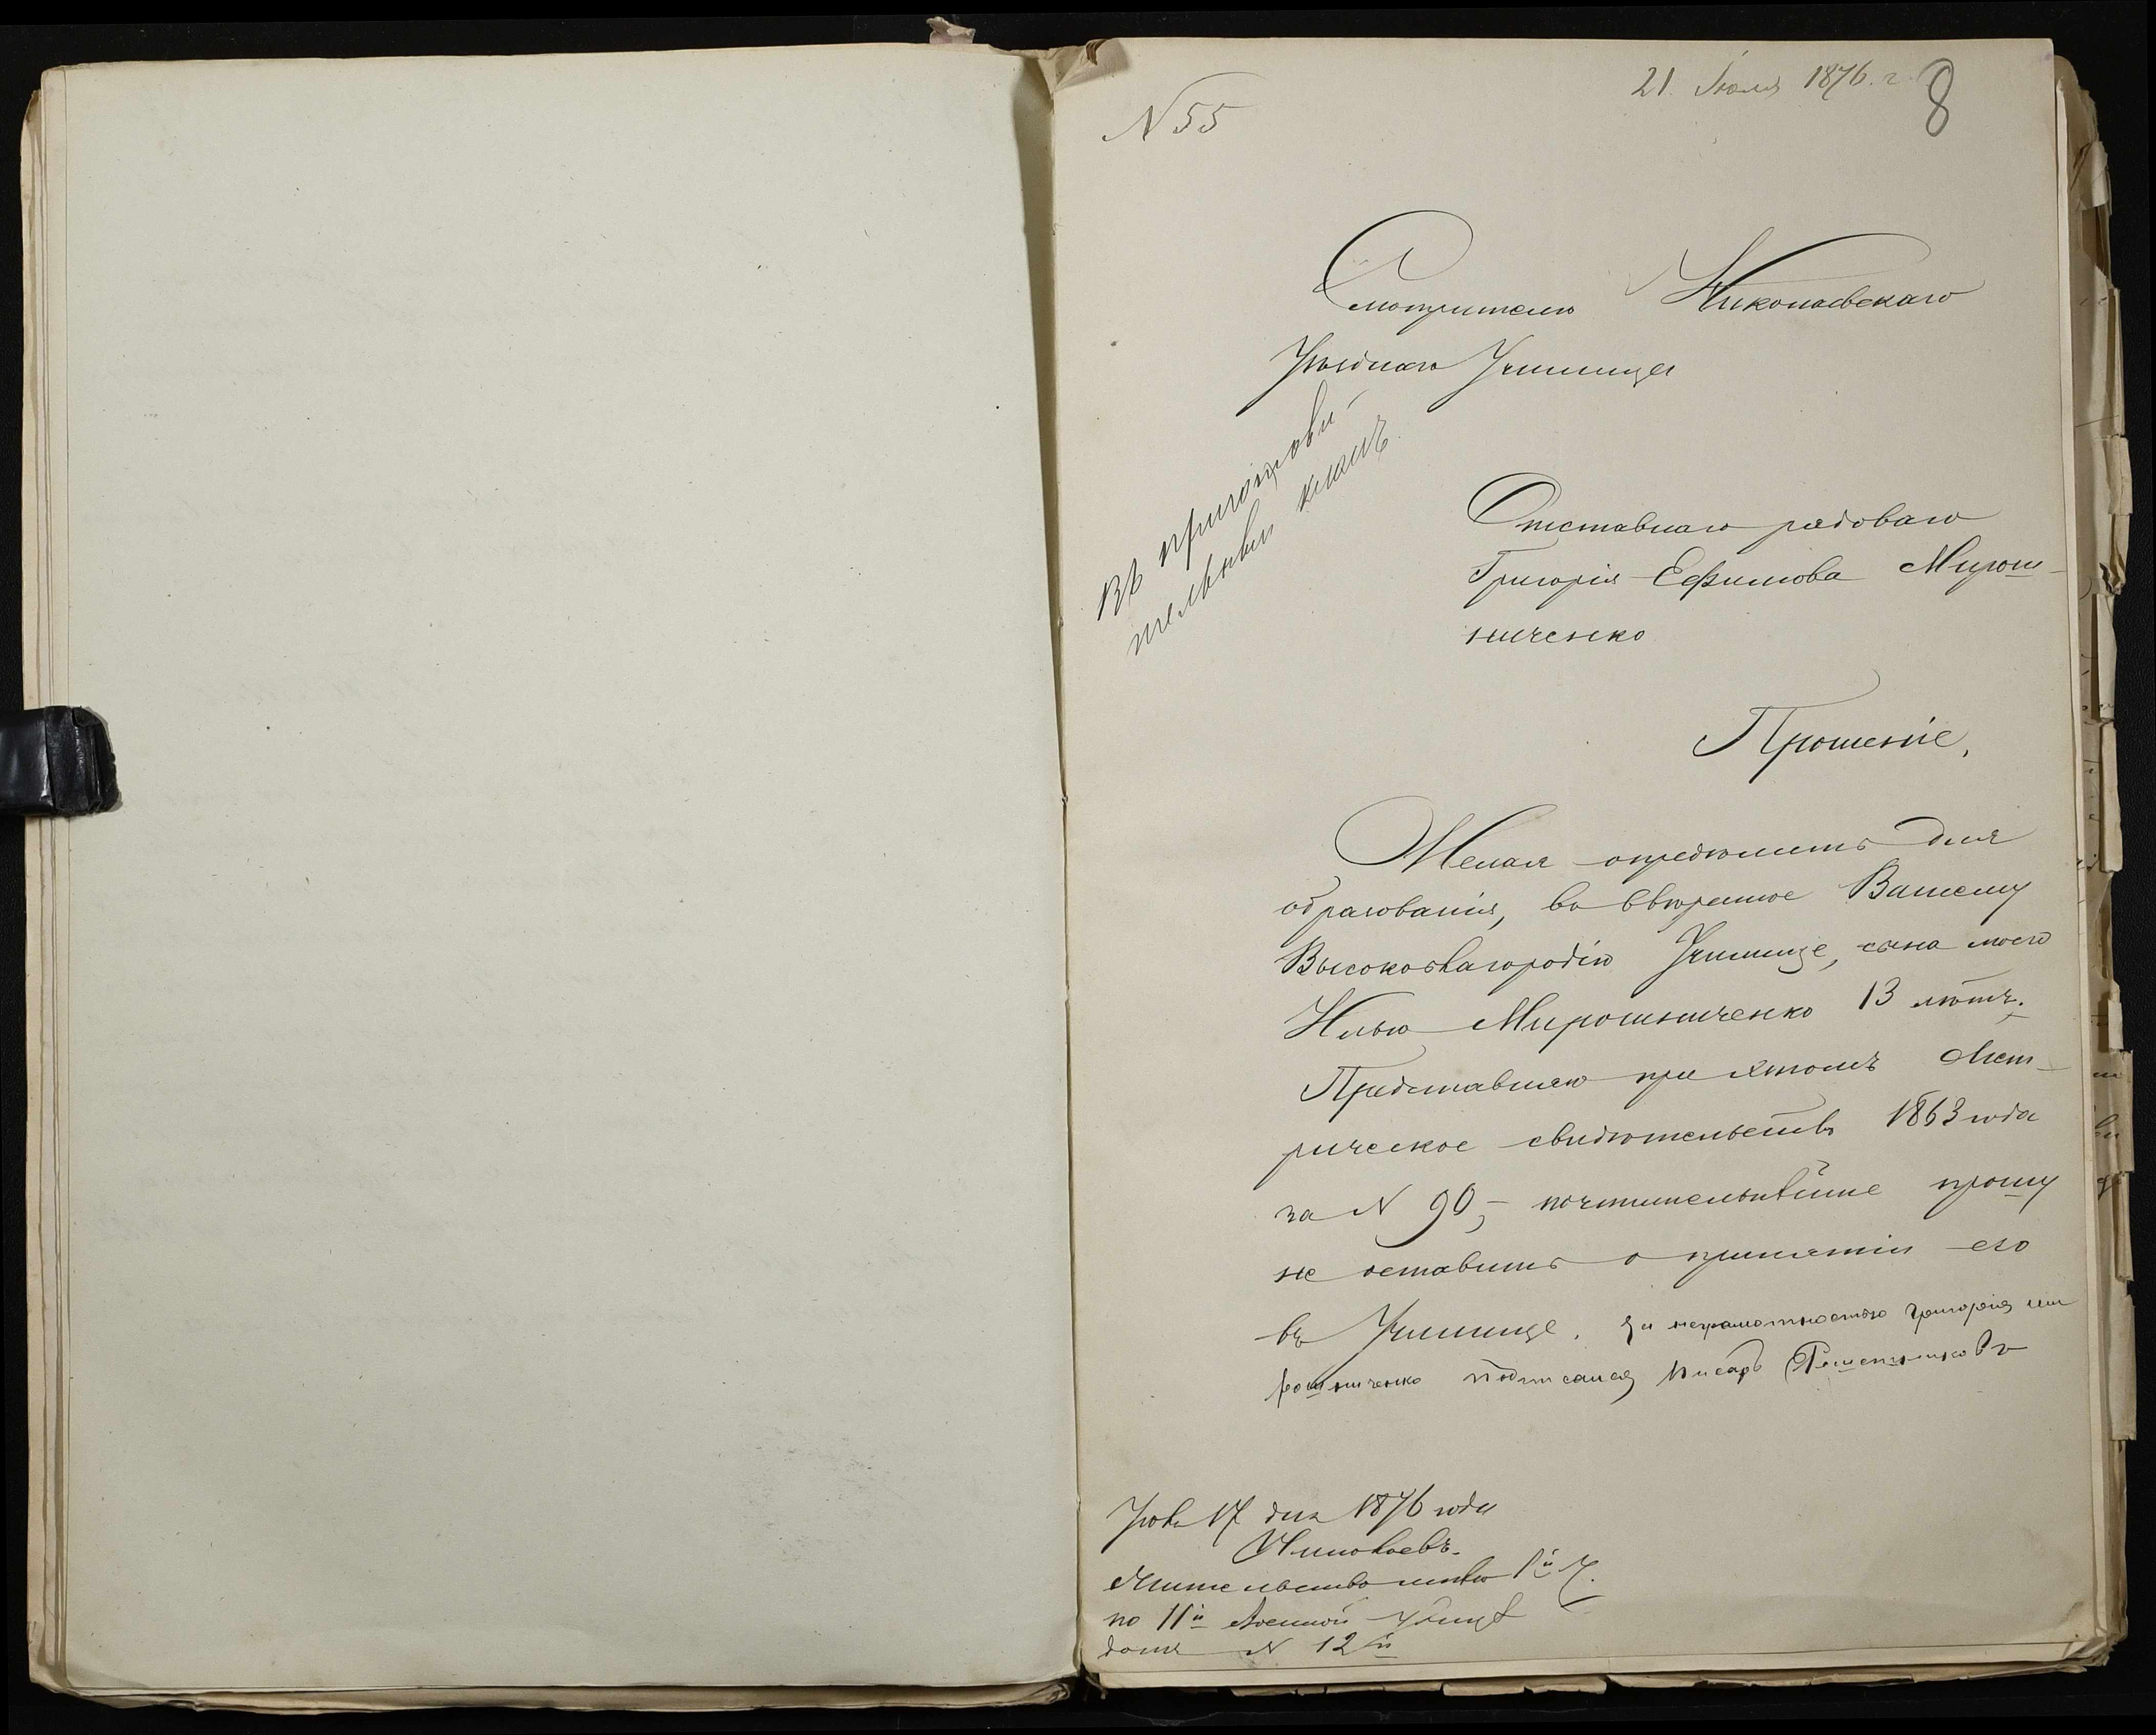 21. Іюля 1876. г.
8
N 55
Смотрителю Николаевскаго
Уѣзднаго Училища
Въ приготови
тельный классъ.
Отставнаго рядоваго
Григорія Ефимова Мирош-
ниченко
Прошеніе,
Желая опредѣлить для
образованія, во ввѣренное Вашему
Высокоблагородію Училище, сына моего
Илью Мирошниченко 13 лѣтъ.
Представляю при этомъ Мет-
рическое свидѣтельство 1863 года
за N 90, – почтительнѣйше прошу
не оставить о принятіи его
въ Училище. За неграмотностью Григорія Ми
рошниченко подписался писарь Решетниковъ
17 дня 1876 года
Николаевъ.
Жительство имѣю 1й Ч.
по 11й Военной улицѣ
домъ N 12й